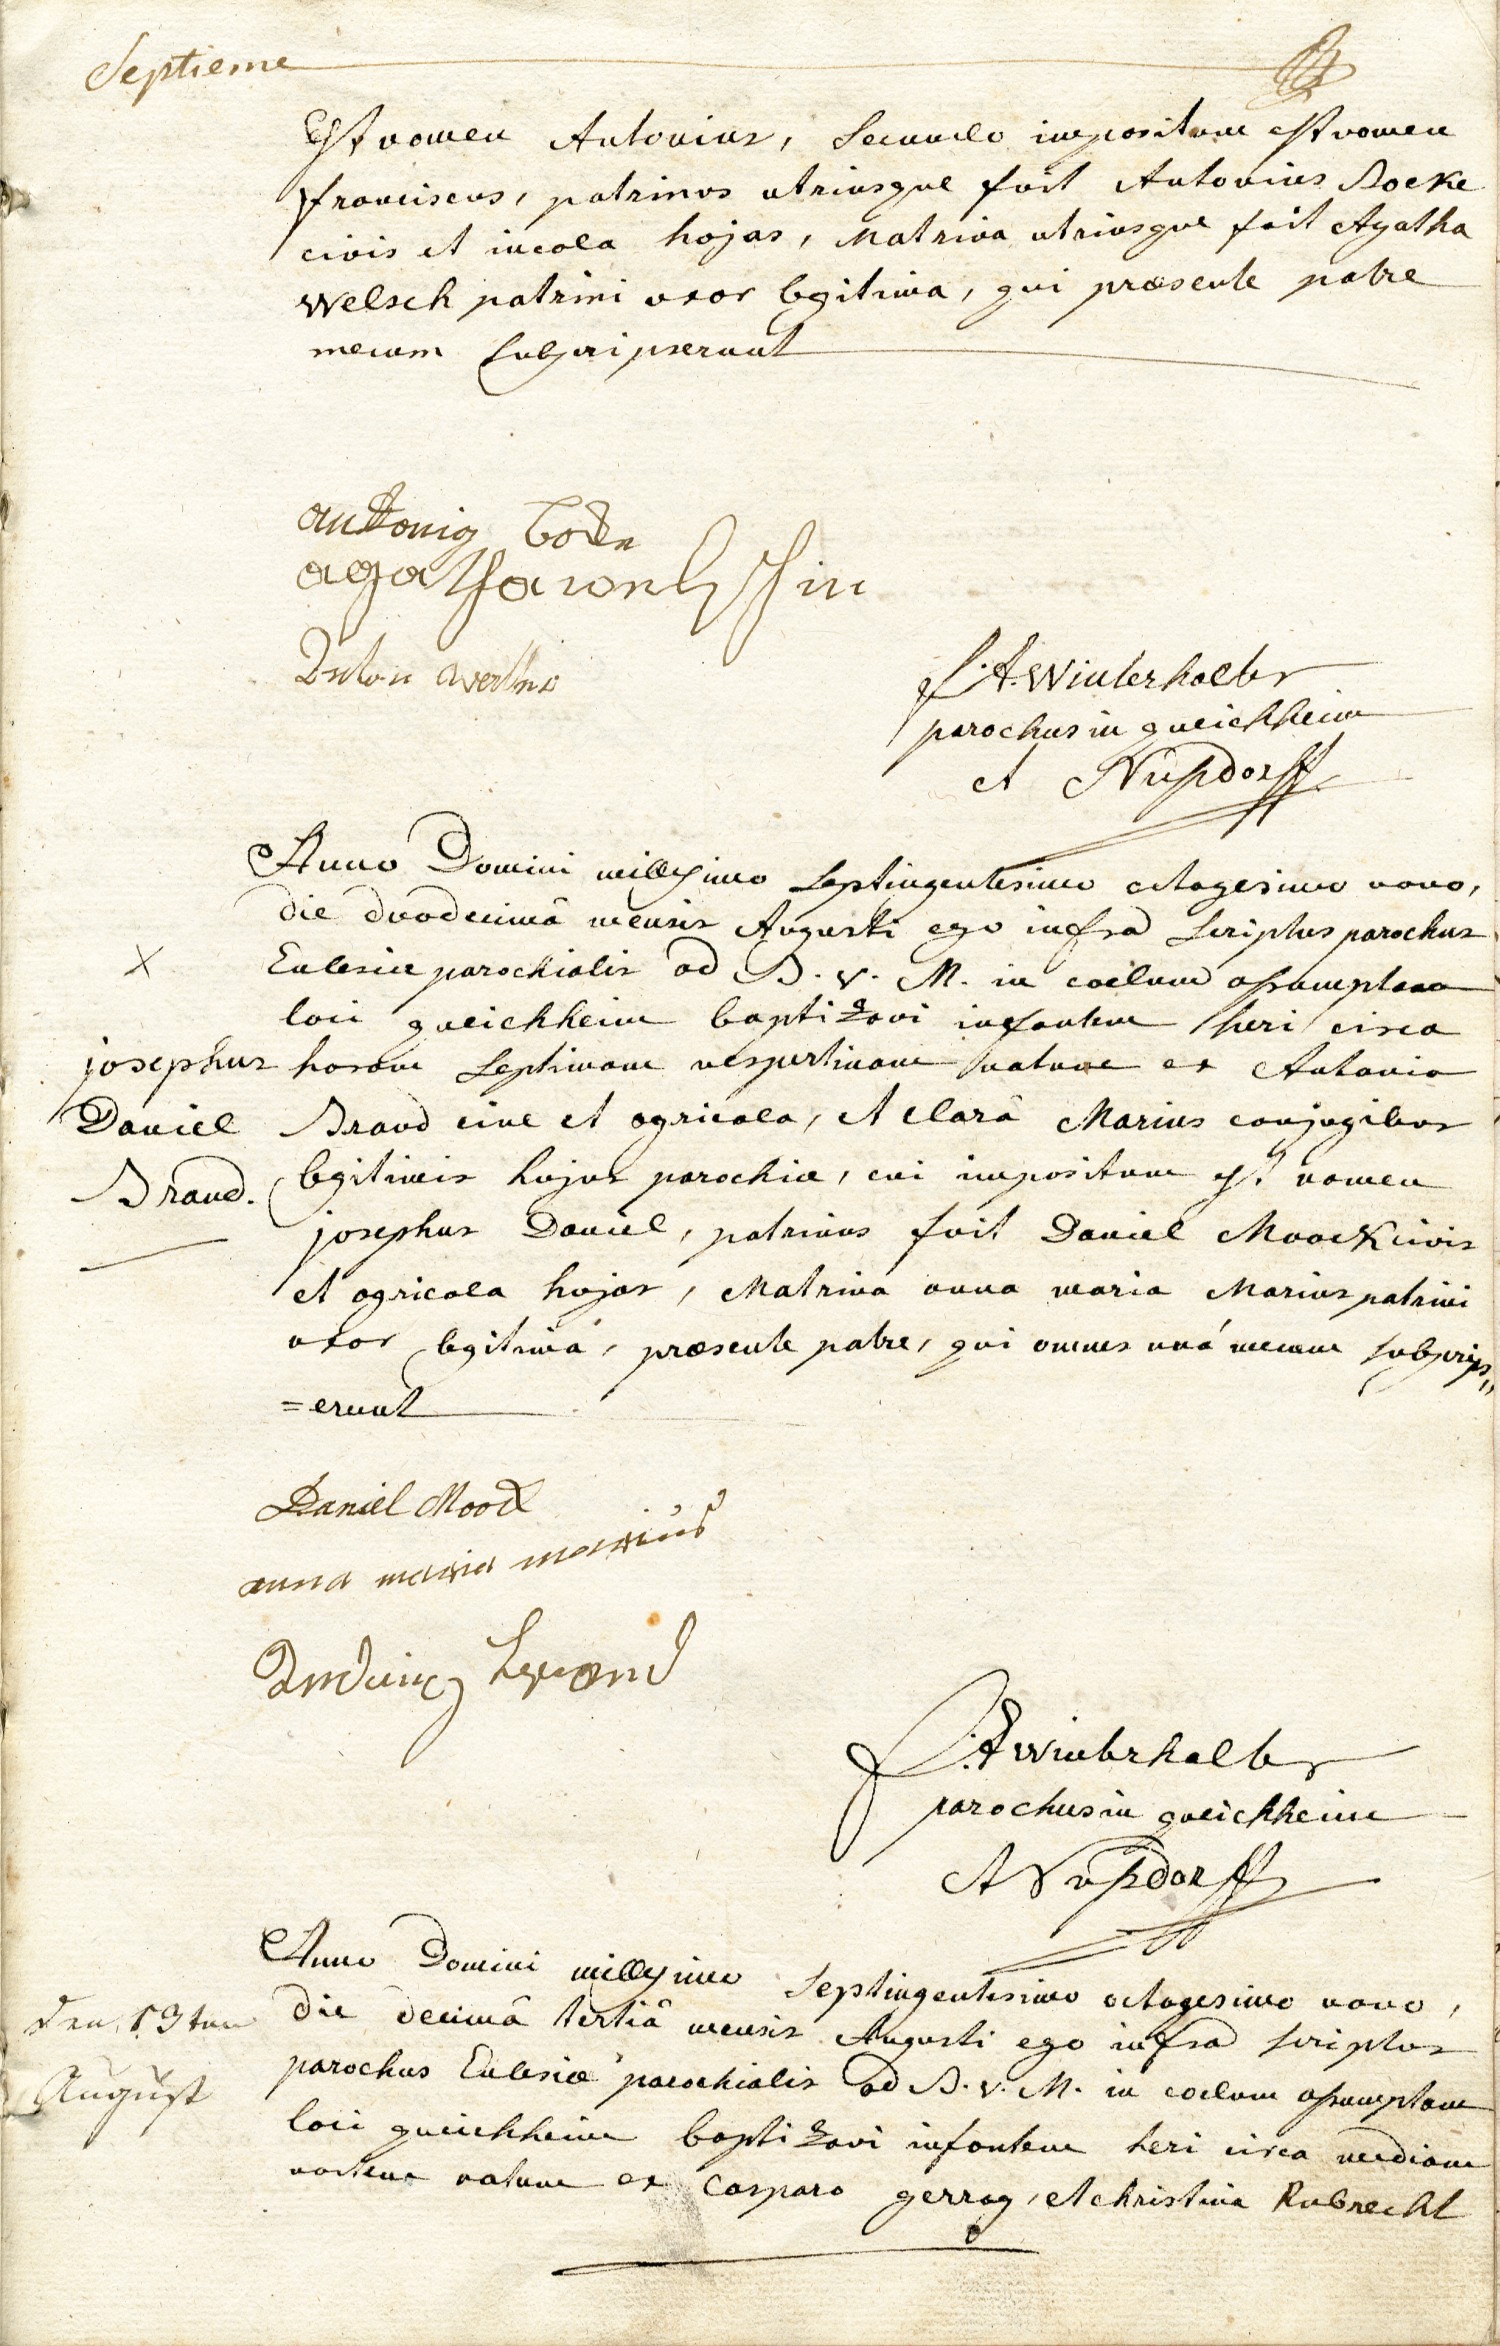 Septieme
Est nomen Antonius, Secundo impositum est nomen
franciscus, patrinus utriusque fuit Antonius Boeke
civis et incola hujas, Matrina utriusque fuit Agatha
Welsch patrini uxor legitima, qui præsente patre
mecum subscripserunt
antonig
agatha welschin
Anton
F. A. Winterhalter
parochus in queichheim
et Nusdorff
Anno Domini millesimo Septingentesimo octogesimo nono,
die duodecimâ mensis Augusti ego infra Scriptus parochus
Eclesiæ parochialis ad B. V. M. in coelum assumptam
loci queichheim baptizavi infantem heri circa
josephus horam Septimam vespertinam natum ex Antonio
Daniel Brand cive et agricola, et clarâ Marius conjugibus
Brand. legitimis hujus parochiæ, cui impositum est nomen
josephus Daniel, patrinus fuit Daniel Moock civis
et agricola hujas, Matrina anna maria Marius patrini
uxor legitima, præsente patre, qui omnes unà mecum subscrips„
=erunt
Daniel Mook
anna maria marius
F. A. Winterhalter
parochus in queichheim
et Nusdorff
Anno Domini millesimo Septingentesimo octogesimo nono,
den 13ten die decimâ tertiâ mensis Augusti ego infra scriptus
August parochus Eclesiæ parochialis ad B. V. M. in coelum assumptam
loci queichheim baptizavi infantem heri circa mediam
noctem natum ex Casparo gerrag, et christina Rubrecht